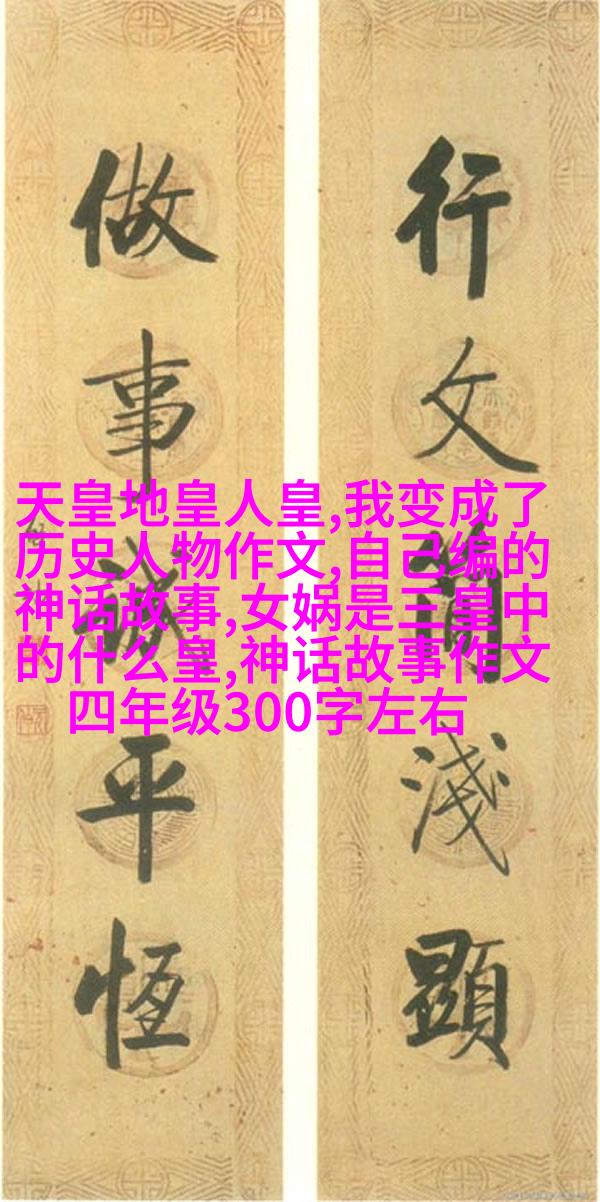 行文簡淺顯
做事誠平恆
天皇地皇人皇,我变成了
历史人物作文,自己编的
神话故事,女娲是三皇中
的什么皇,神话故事作文
四年级300字左右